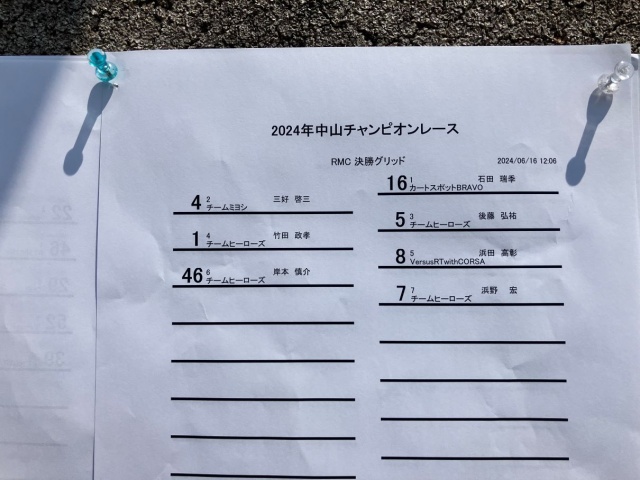 2024年中山チャンピオンレース
RMC 決勝グリッド 2024/06/16 12:06
16 1 石田 瑞季
カートスポットBRAVO
4 2 三好 啓三
チームミヨシ
5 3 後藤 弘祐
チームヒーローズ
1 4 竹田 政孝
チームヒーローズ
8 5 浜田 高彰
VersusRTwithCORSA
46 6 岸本 慎介
チームヒーローズ
7 7 浜野 宏
チームヒーローズ